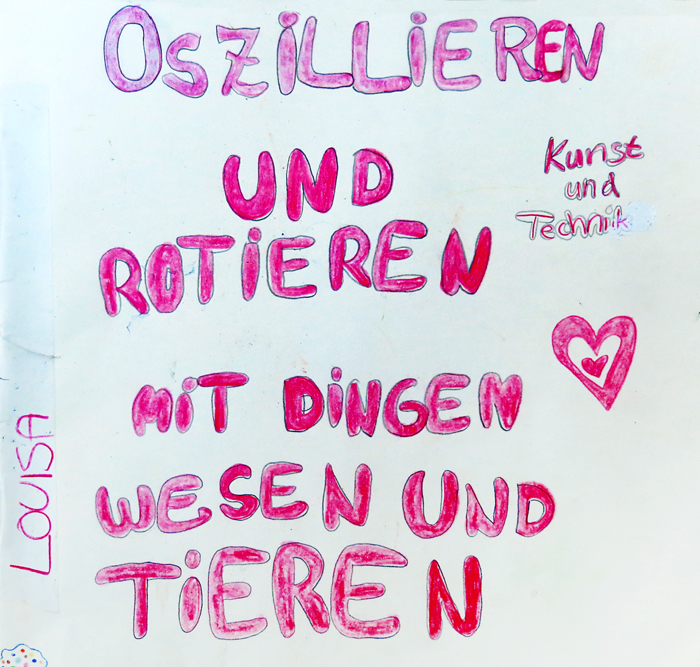 OSZiLLiEREN
UND
ROTiEREN
MiT DiNGEN
WESEN UND
TiEREN
Kunst
und
Technik
LOUISA